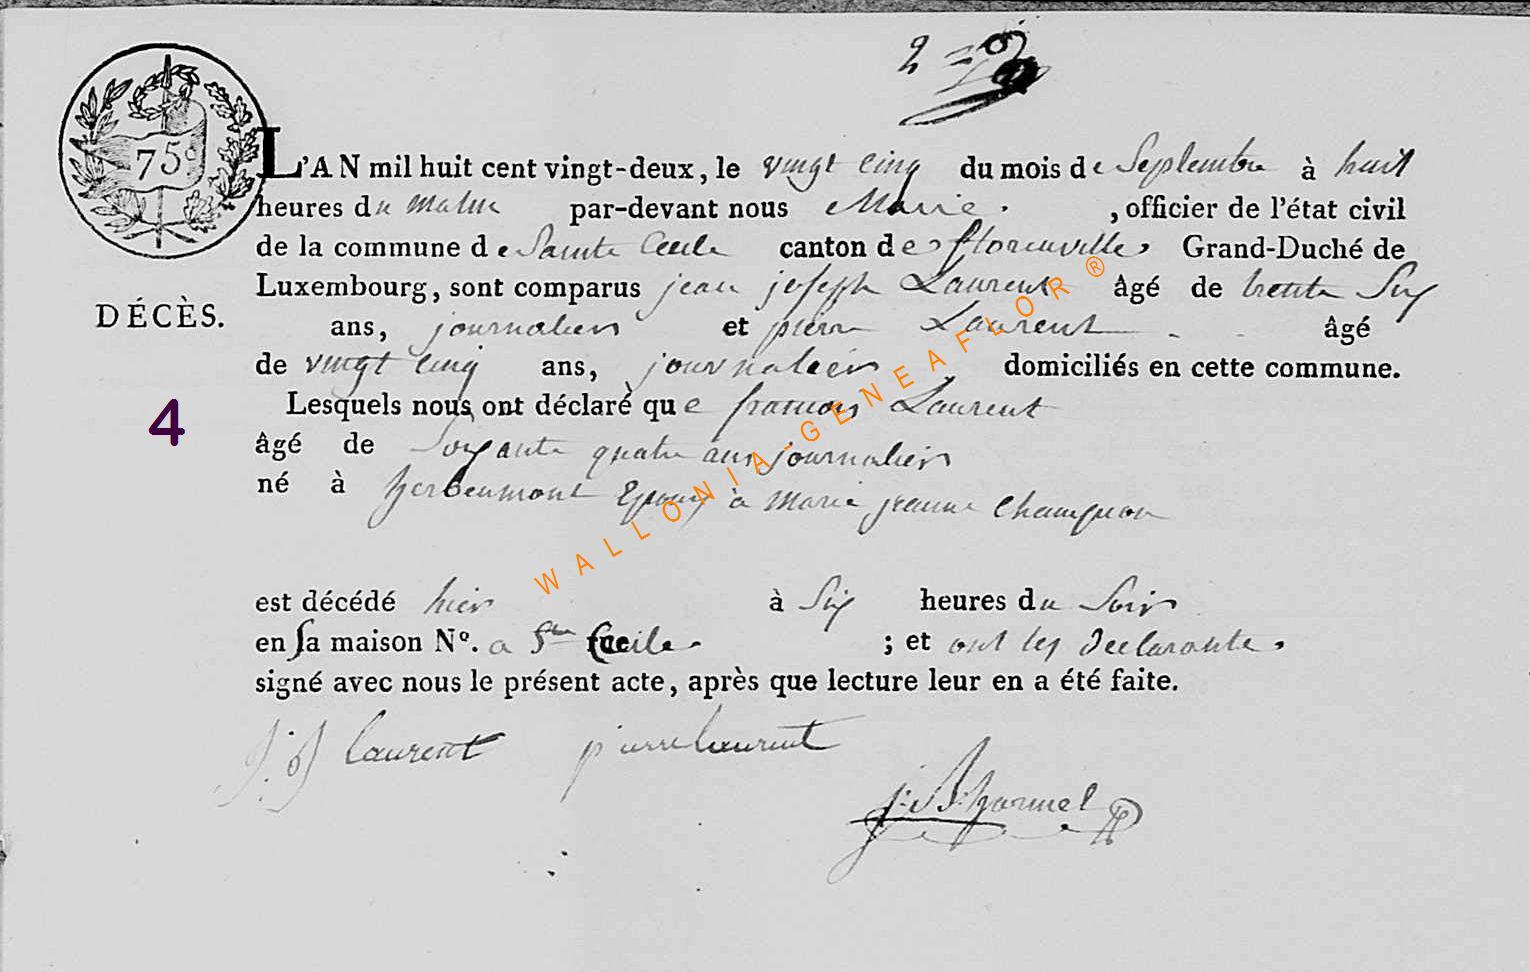 2 =
75c
L'AN mil huit cent vingt-deux, le vingt cinq du mois de Septembre à huit
heures du Matin par-devant nous Maire, officier de l'état civil
de la commune de Sainte Cecile canton de florenville Grand-Duché de
Luxembourg, sont comparus jean joseph Laurent âgé de trente Six
DÉCÈS.
ans, journalier et pierre Laurent âgé
de vingt cinq ans, journalier domiciliés en cette commune.
4
Lesquels nous ont déclaré que francois Laurent
âgé de Soixante quatre ans journalier
né à herbeumont Epoux à marie jeanne Champion
WALLONIA-GENEAFLOR®
est décédé hier à Six heures du Soir
en sa maison Nº. a Ste Cecile ; et ont les Declarants
signé avec nous le présent acte, après que lecture leur en a été faite.
j. j laurent pierre laurent
j: B: harmel